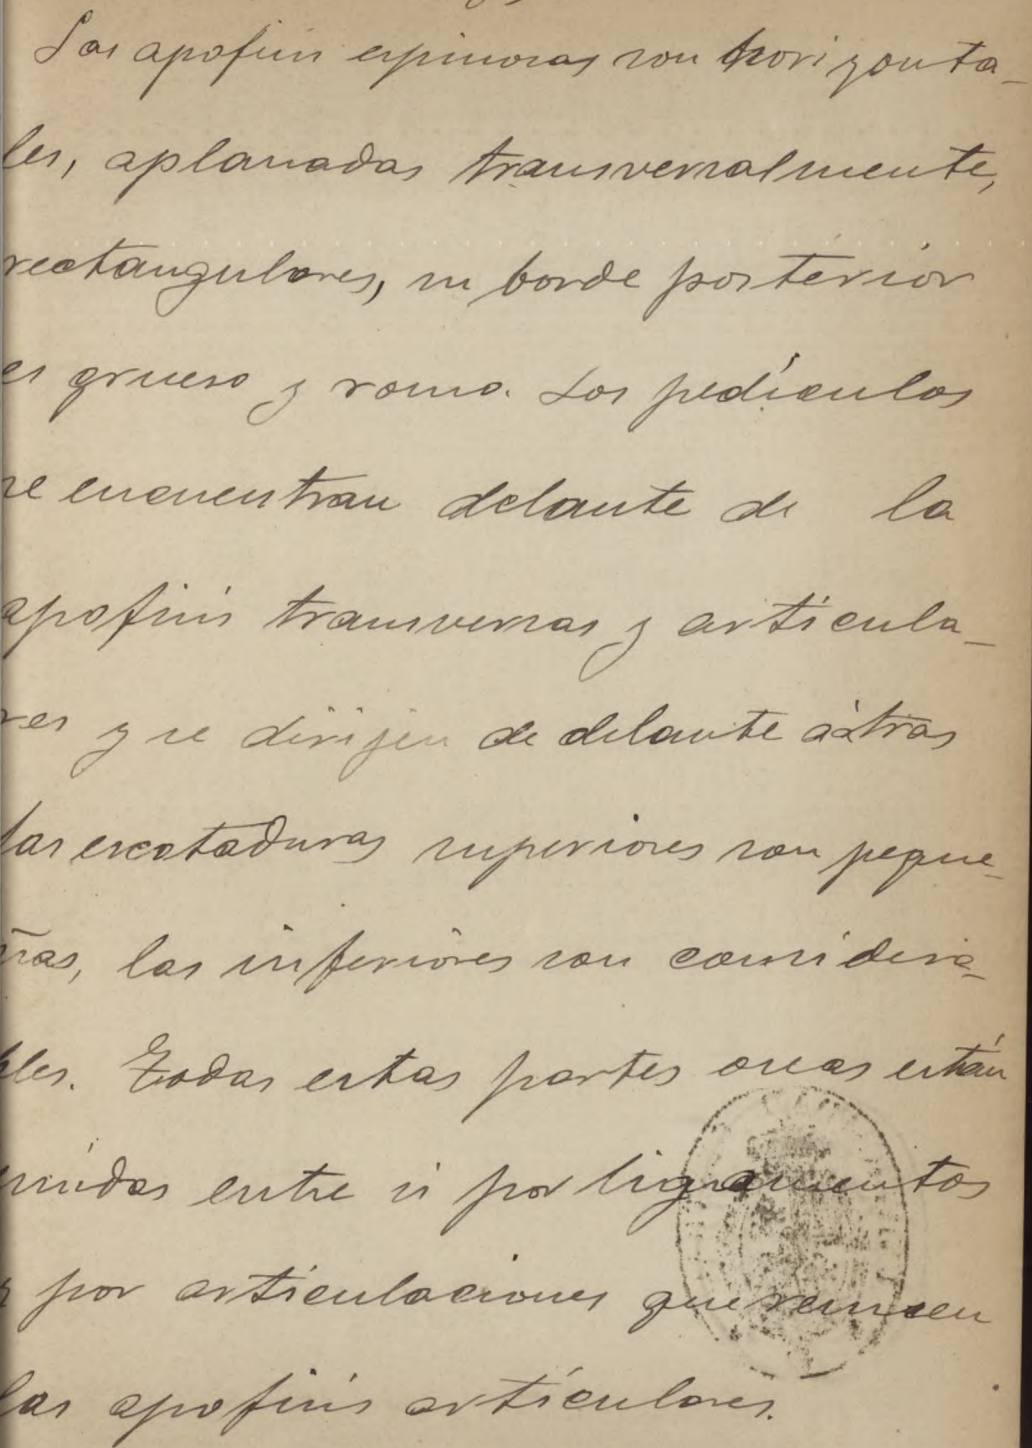 Las apofisis espinosas son horizonta-
les, aplanadas transversalmente,
rectangulares, su borde posterior
es grueso y romo. Los pedículos
se encuentran delante de la
apofisis transversas y articula-
res y se dirijen de delante àtras
las escotaduras superiores son peque-
ñas, las inferiores son considera-
bles. Todas estas partes oseas están
unidas entre si por ligamentos
y por articulaciones que reunen
las apofisis articulares.